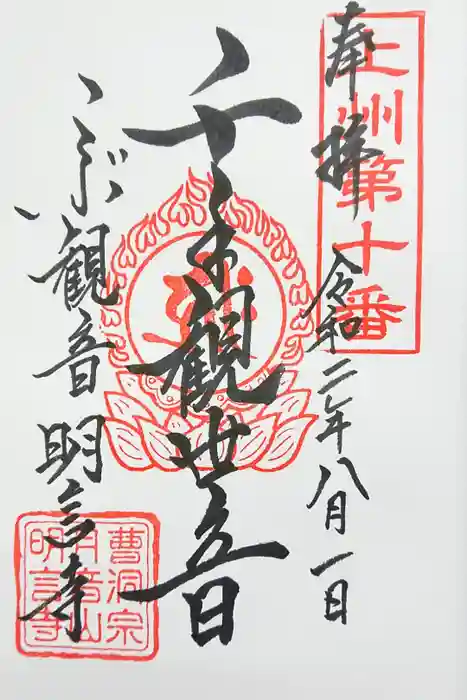 奉拝
上州第十番
令和二年八月一日
千手観世音
こぶ観音 明言寺
曹洞宗
月音山
明言寺